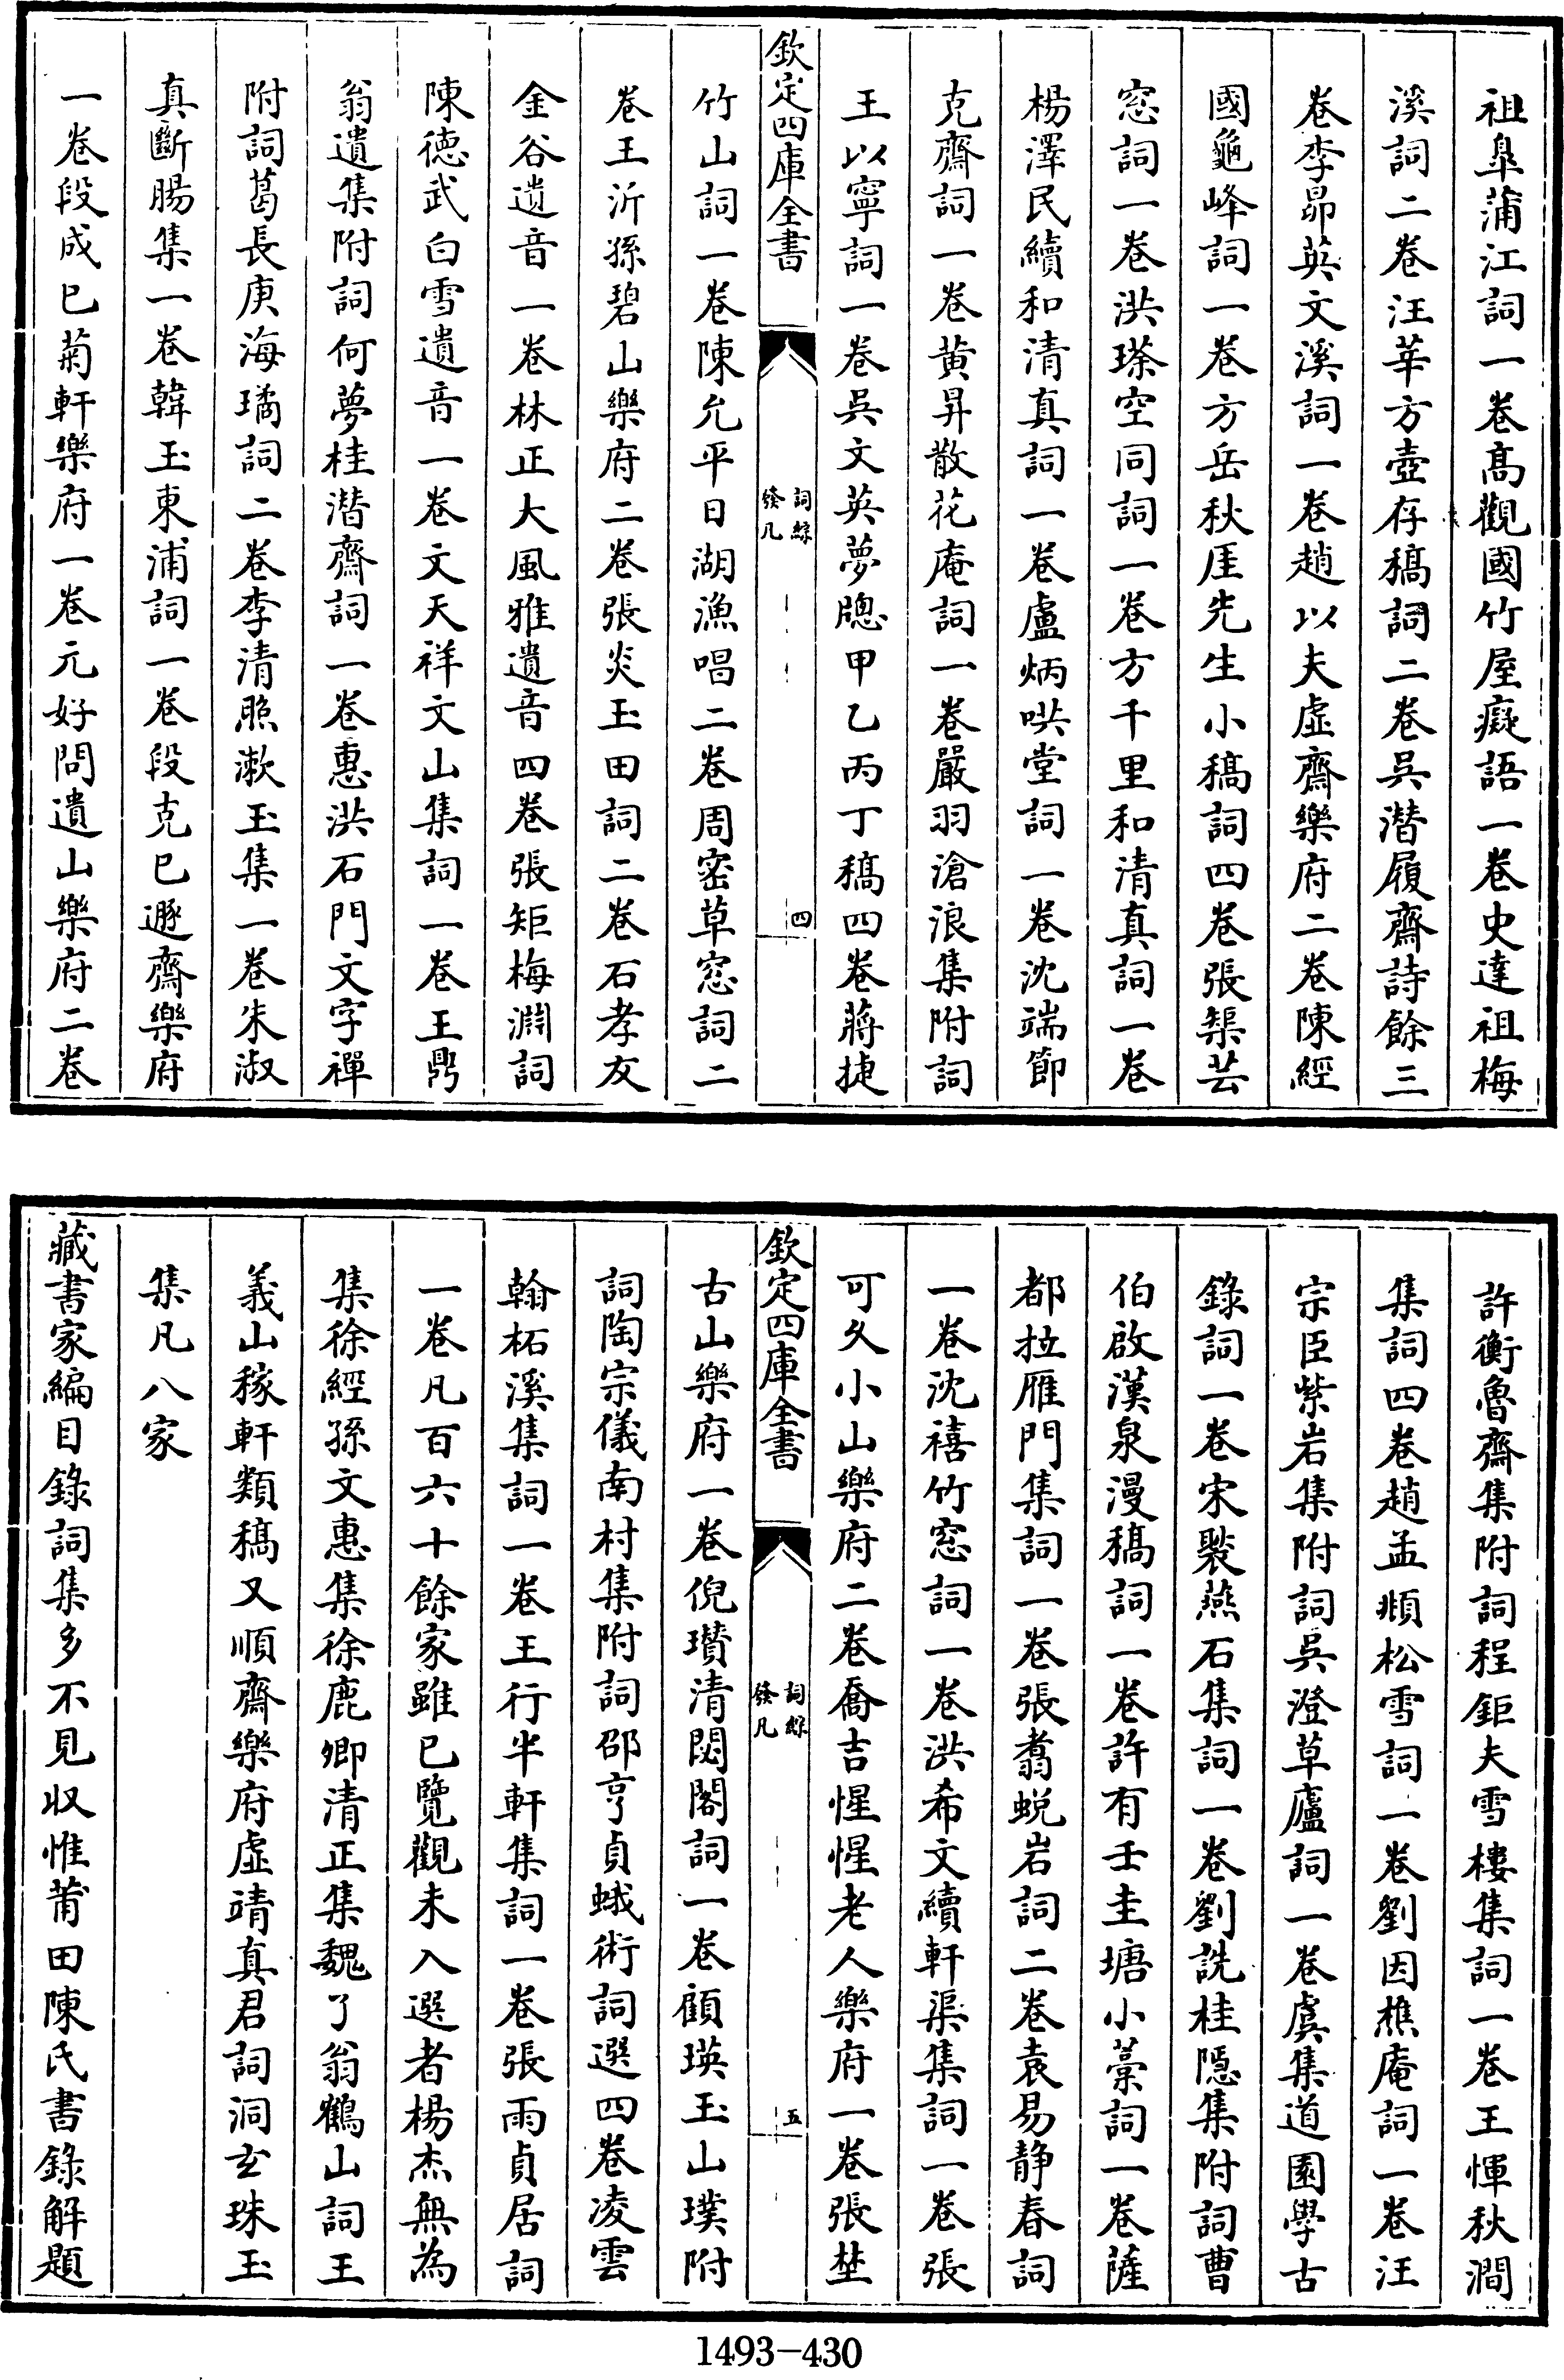 祖臯蒲江詞一卷髙觀國竹屋癡語一卷史達祖梅
溪詞二卷汪莘方壺存稿詞二卷吳潛履齋詩餘三
卷李昴英文溪詞一卷趙以夫虛齋樂府二卷陳經
國龜峰詞一卷方岳秋厓先生小稿詞四卷張榘芸
窓詞一卷洪瑹空同詞一卷方千里和清真詞一卷
楊澤民續和清真詞一卷盧炳哄堂詞一卷沈端節
克齋詞一卷黄昇散花庵詞一卷嚴羽滄浪集附詞
王以寧詞一卷吳文英夢牕甲乙丙丁稿四卷蔣捷
欽定四庫全書
詞綜
發凡
四
竹山詞一卷陳允平日湖漁唱二卷周密草窓詞二
卷王沂孫碧山樂府二卷張炎玉田詞二卷石孝友
金谷遺音一卷林正大風雅遺音四卷張矩梅淵詞
陳德武白雪遺音一卷文天祥文山集詞一卷王鼎
翁遺集附詞何夢桂潛齋詞一卷惠洪石門文字禪
附詞葛長庚海璚詞二卷李清照漱玉集一卷朱淑
真斷腸集一卷韓玉東浦詞一卷段克巳遯齋樂府
一卷段成巳菊軒樂府一卷元好問遺山樂府二卷
許衡魯齋集附詞程鉅夫雪樓集詞一卷王惲秋澗
集詞四卷趙孟頫松雪詞一卷劉因樵庵詞一卷汪
宗臣紫岩集附詞吳澄草廬詞一卷虞集道園學古
錄詞一卷宋褧燕石集詞一卷劉詵桂隱集附詞曹
伯啟漢泉漫稿詞一卷許有壬圭塘小藳詞一卷薩
都拉雁門集詞一卷張翥蛻岩詞二卷袁易靜春詞
一卷沈禧竹窓詞一卷洪希文續軒渠集詞一卷張
可久小山樂府二卷喬吉惺惺老人樂府一卷張埜
欽定四庫全書
詞綜
發凡
五
古山樂府一卷倪瓚清閟閣詞一卷顧瑛玉山璞附
詞陶宗儀南村集附詞邵亨貞蛾術詞選四卷凌雲
翰柘溪集詞一卷王行半軒集詞一卷張雨貞居詞
一卷凡百六十餘家雖巳覽觀未入選者楊杰無為
集徐經孫文惠集徐鹿卿清正集魏了翁鶴山詞王
義山稼軒類稿又順齋樂府虛靖真君詞洞玄珠玉
集凡八家
藏書家編目錄詞集多不見収惟莆田陳氏書錄解題
1493-430